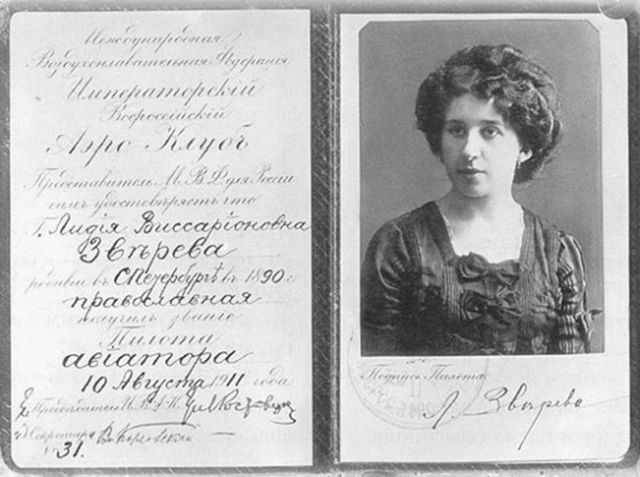 Международная
Воздухоплавательная Федерація
Императорскій
Всероссійскій
Аэро Клубъ
Представитель М. В. Ф. для Россіи
симъ удостовѣряетъ что
Г. Лидія Виссаріоновна
Звѣрева
родивш въ С.Петербургѣ въ 1890 г.
православная
получилъ званіе
Пилота
авіатора
10 Августа 1911 года
Предсѣдатель И. В. А. К.
Секретарь
№ 31.
Подпись Пилота
Л. Звѣрева